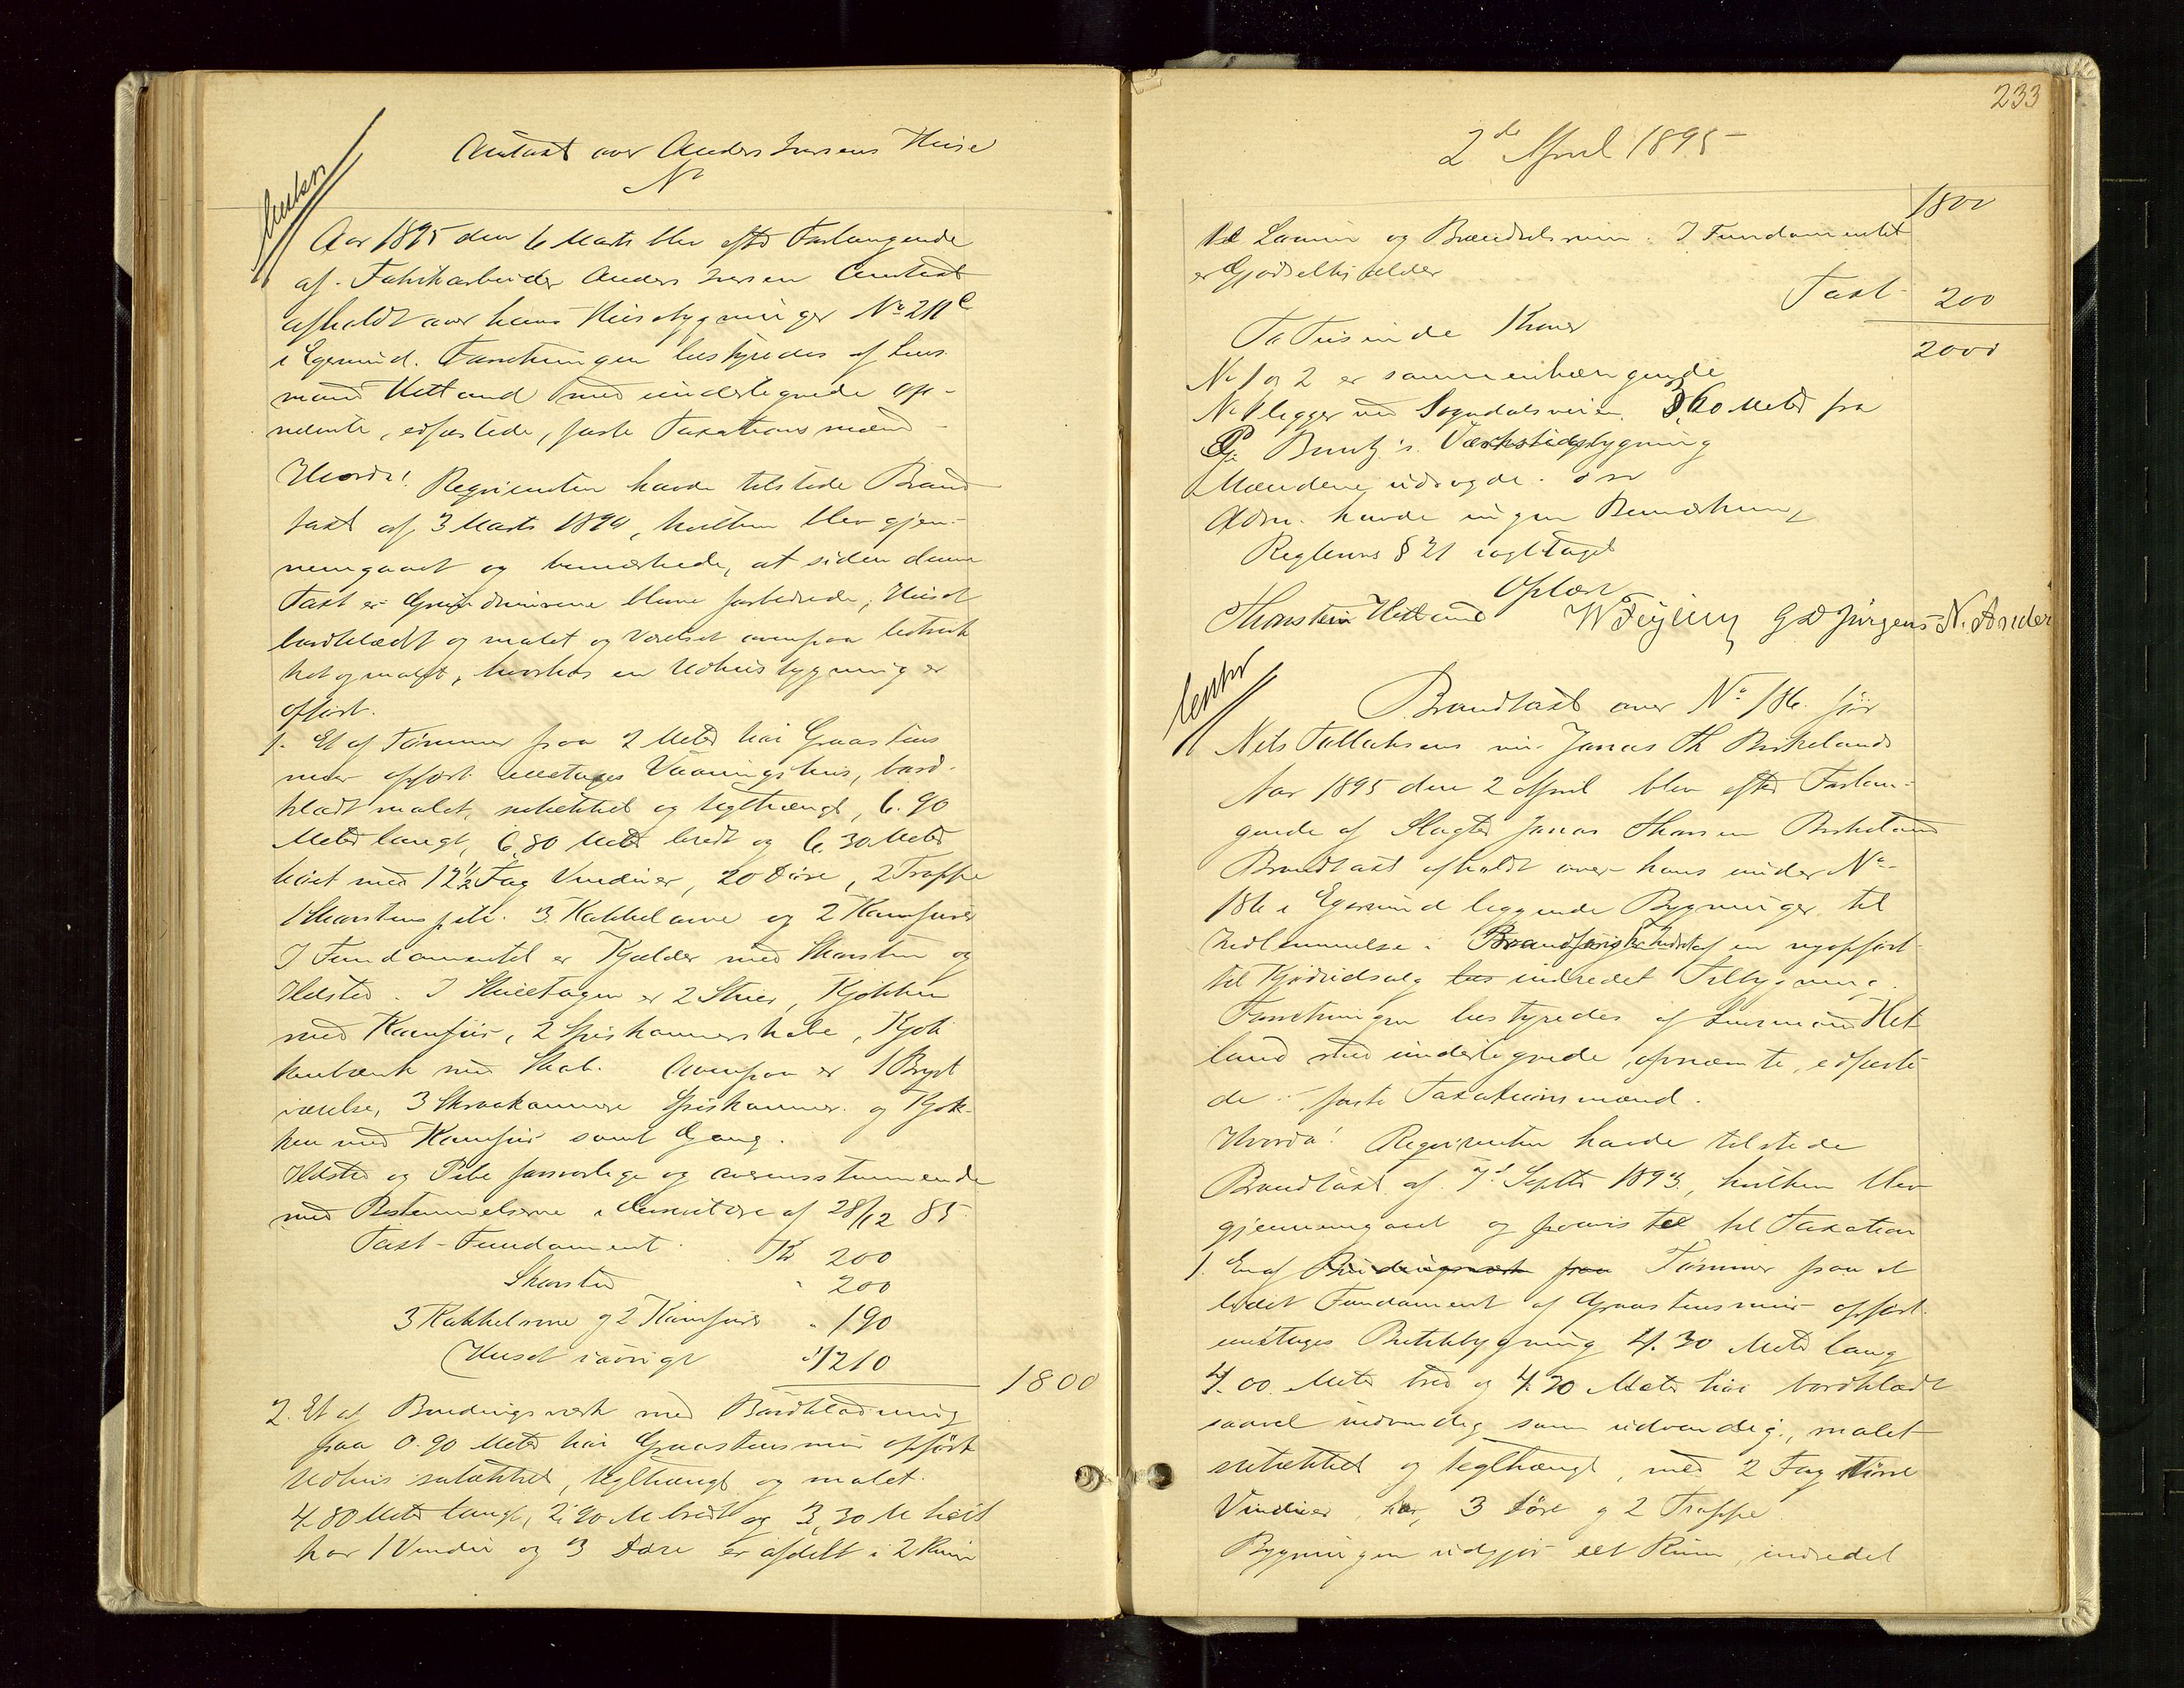 Omtaxt over Anders Iversens Huse
No
Aar 1895 den 6 Marts blev efter Forlangende
af Fabrikarbeider Anders Iversen Omtaxt
afholdt over hans Huusbygninger No 211 e
i Egersund. Forretningen bestyredes af Lens
mand Hetland med undertegnede op-
nævnte, edfæstede, faste Taxationsmænd
Hvorda! Repvirenten havde tilstede Brand
taxt af 3 Marts 1894, hvilken blev gjen-
nemgaaet og bemærkede, at siden denne
Taxt er Grundmurene blevne forbedrede, Huset
bordklædt og malet og Værelset ovenpaa betræk
ket og malet, hvorhos en Udhusbygning er
opført.
1. Et af Tømmer paa 2 Meter høi Graastens
muur opført eenetages Vaaningshus, bord-
klædt malet, sutækket og teglhængt, 6.90
Meter langt, 6.80 Meter bredt og 6.30 Meter
høit med 12 1/2 Fag Vinduer, 20 Døre, 2 Trappe
1 Skorstenspibe 3 Kakkelovne og 2 Komfurer
I Fundamentet er Kjælder med Skorsten og
Ildsted. I Stueetagen er 2 Stuer, Kjøkken
med Komfur, 2 Spiskammerskabe, Kjøk
kenbænk med Skab. Ovenpaa er 1 Bryst
værelse, 3 Skraakammere Spiskammer og Kjøk-
ken med Komfur samt Gang.
Ildsted og Pibe forsvarlige og overensstemmende
med Bestemmelserne i Circulære af 28/12 85
Taxt - Fundament Kr 200
Skorsten " 200
3 Kakkelovne og 2 Komfurer " 190
Huset iøvrigt " 1210
1800
2. Et af Bindingsværk med Bordklædning
paa 0.90 Meter høi Graastensmur opført
Udhus sutækket, teglhængt og malet
4.80 Meter langt, 2.90 M bredt og 3.30 M høit
har 1 Vindu og 3 Døre er afdelt i 2 Rum
233
2de April 1895
1800
til Lemmer og Brændselsrum. I Fundamentet
er Gjødselkjælder
Taxt 200
To Tusinde Kroner
2000
No 1 og 2 er sammenhængende
No 1 ligger ved Sogndalsveien 3,60 Meter fra
P. Bentz's Værkstedsbygning
Mændene udsagde osv
Adm. havde ingen Bemærkning
Reglems § 21 iagttaget
Oplæst
Thorstein Hetland W Feyling G D Jørgens N. Ander
Brandtaxt over No 186 før
Nils Tollaksens nu Jonas Th Birkelands
Aar 1895 den 2 April blev efter Forlan-
gende af Slagter Jonas Thorsen Birkeland
Brandtaxt afholdt over hans under No
186 i Egersund liggende Bygninger til
Indlemmelse i Brandforsikringen af en nyopført
til Kjødudsalg indredet Tilbygning.
Forretningen bestyredes af Lensmand Het
land med undertegnede, opnævnte, edfæste
de faste Taxationsmænd.
Hvorda! Repvirenten havde tilstede
Brandtaxt af 7d Septbr 1893, hvilken blev
gjennemgaaet og paavist til Taxation
1. En af Bindingsværk paa Tømmer paa et
lidet Fundament af Graastensmur opført
eenetages Butikbygning 4.30 Meter lang
4.00 Meter bred og 4.20 Meter høi bordklædt
saavel indvendig som udvendig, malet
sutækket og teglhængt, med 2 Fag større
Vinduer, har 3 Døre og 2 Trappe
Bygningen udgjør eet Rum, indredet